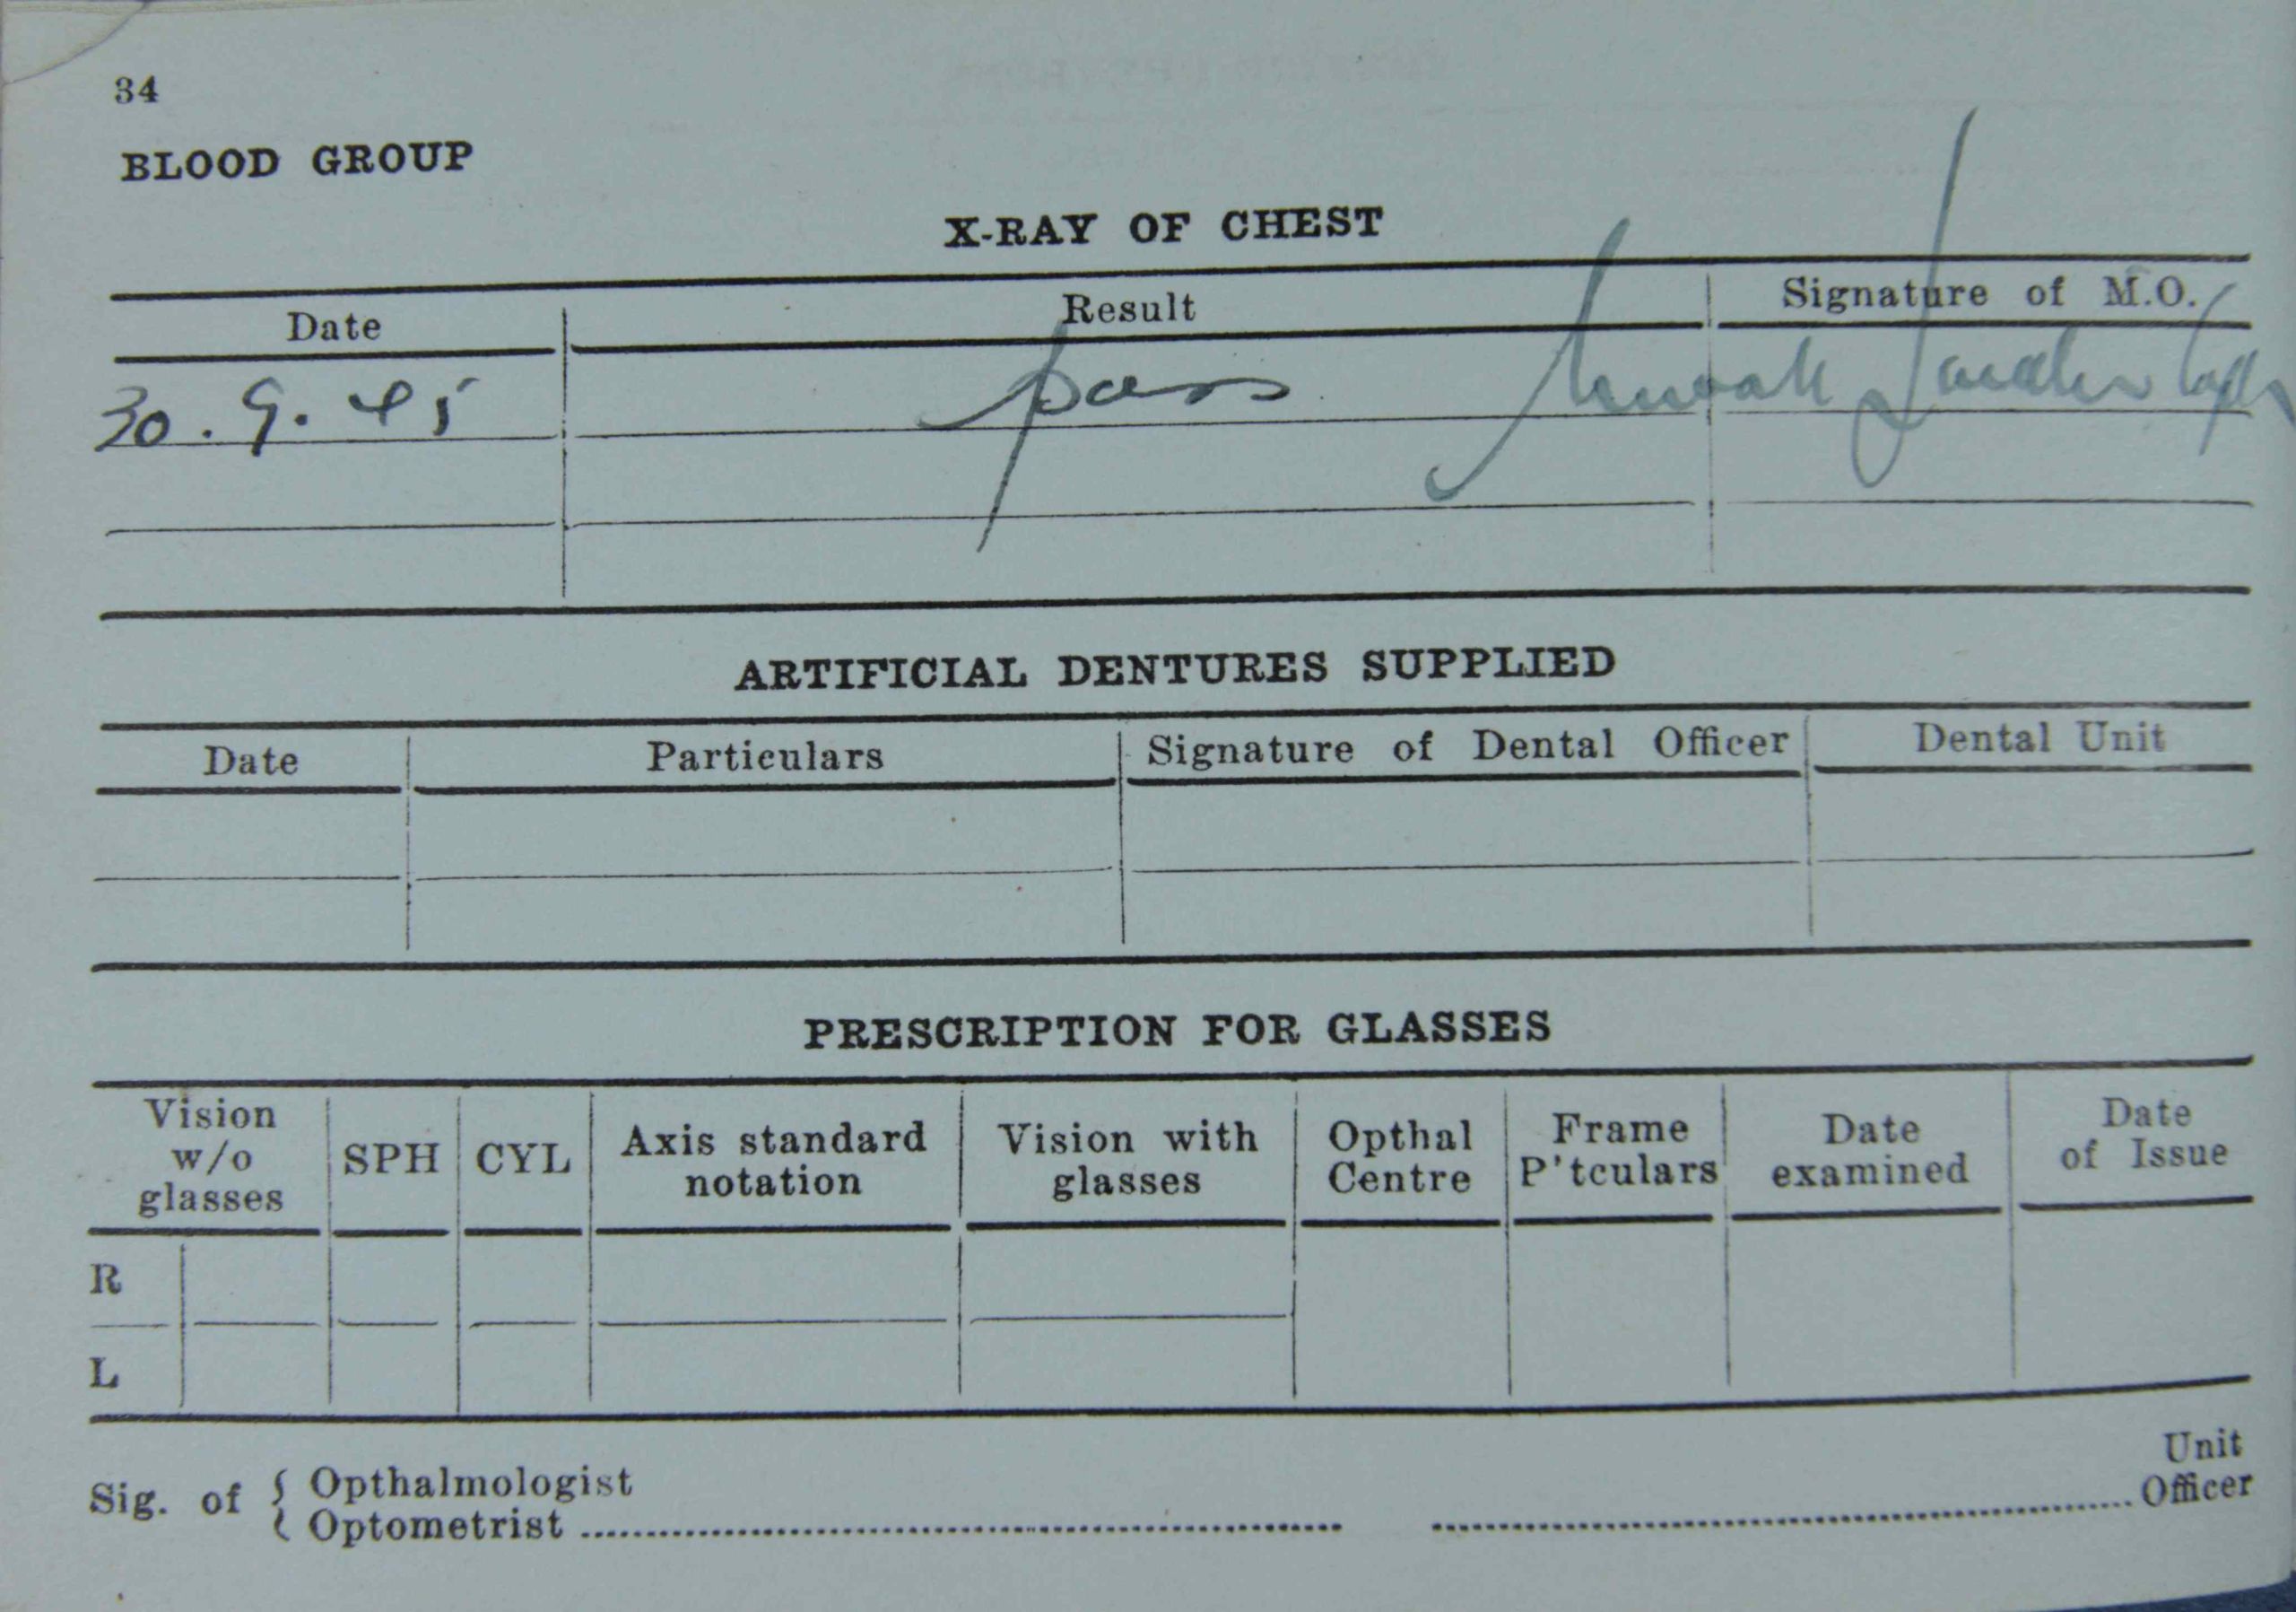 34
BLOOD GROUP
X-RAY OF CHEST
Date Result Signature of M.O.
30.9.45 pass
ARTIFICIAL DENTURES SUPPLIED
Date Particulars Signature of Dental Officer Dental Unit
PRESCRIPTION FOR GLASSES
Vision w/o glasses SPH CYL Axis standard notation Vision with glasses Opthal Centre Frame P'tculars Date examined Date of Issue
R
L
Sig. of { Opthalmologist
Optometrist ........................ ........................ Unit Officer